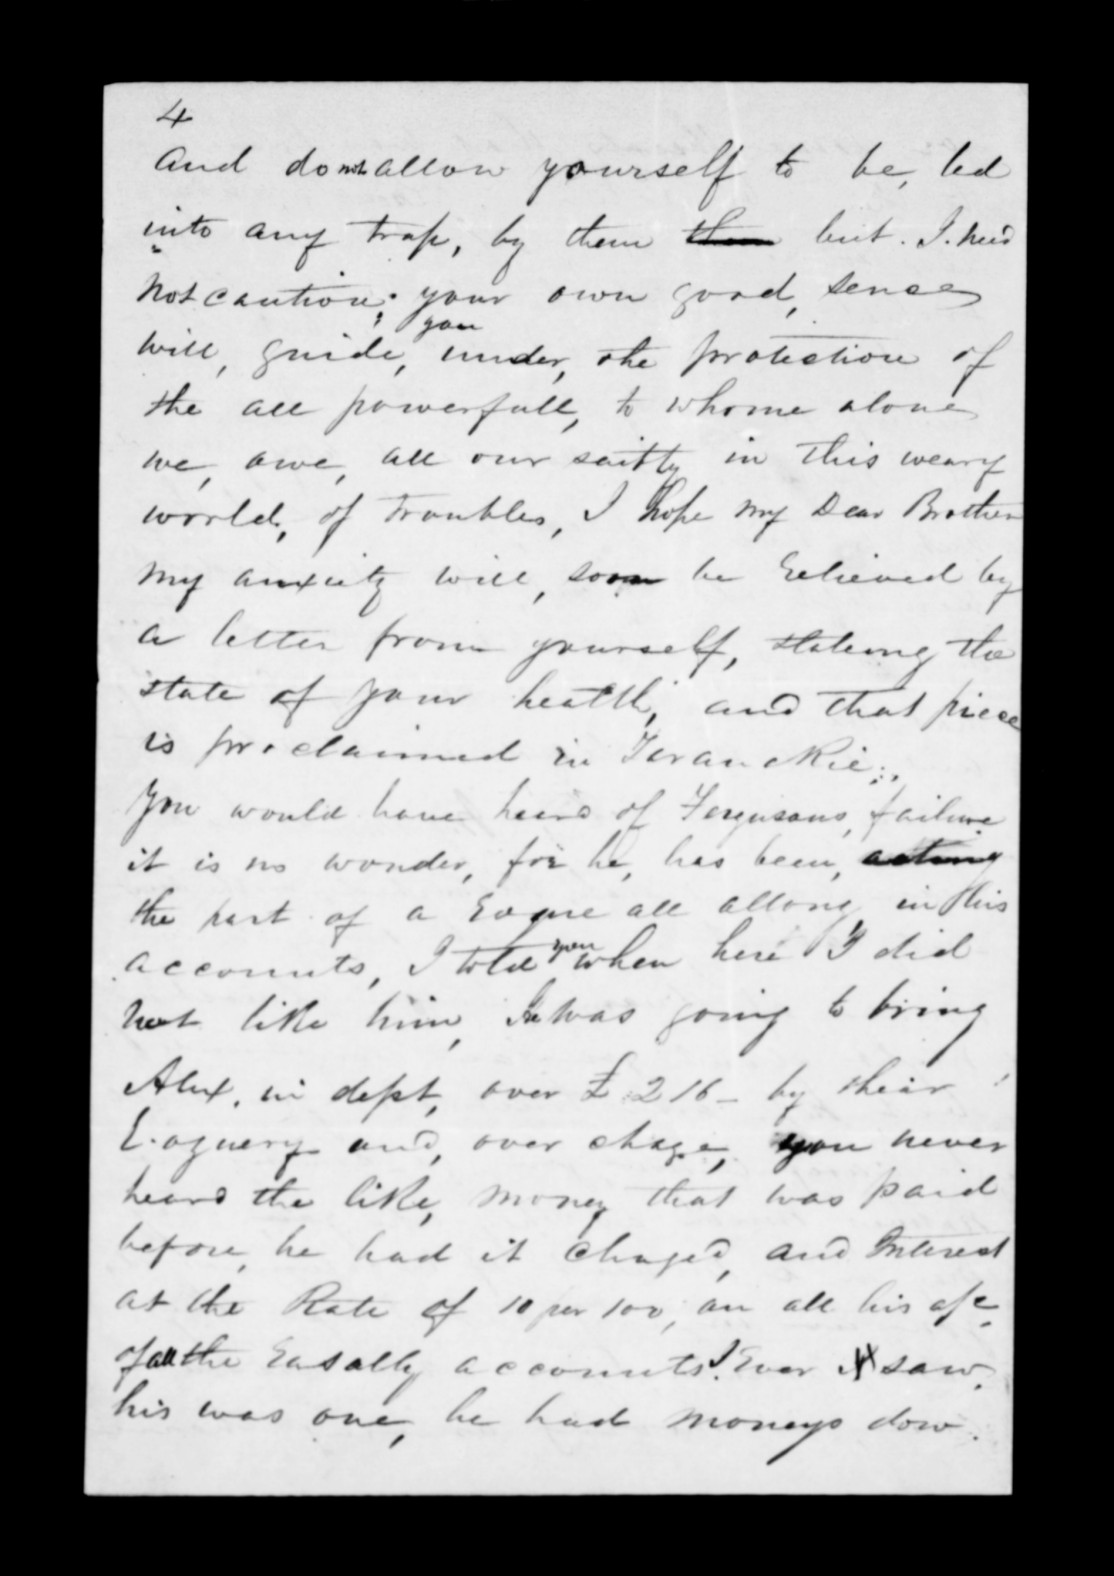 4
and do not allow yourself to be, led
into any trap, by them them but. I. need
not caution; your own good, sence
will, guide, you under, the protection of
the all powerfull, to whome alone
we, owe, all our saifty in this weary
world, of troubles, I hope my Dear Brother
my anxiety will, soon be Relieved by
a letter from yourself, stateing the
state of your health, and that piece
is proclaimed in Taranckie;.
You would have heard of Fergusons, failure
it is no wonder, for he, has been, acting
the part of a Rogue all allong in his
accounts, I told you when here I did
not like him, he was going to bring
Alex. in dept, over £216 - by their
Roguery and, over chage, you never
heard the like, money that was paid
before, he had it chaged, and Interest
at the Rate of 10 per 100, on all his a/c,
of all the Rasally accounts. I Ever saw,
his was one, he had moneys dow.